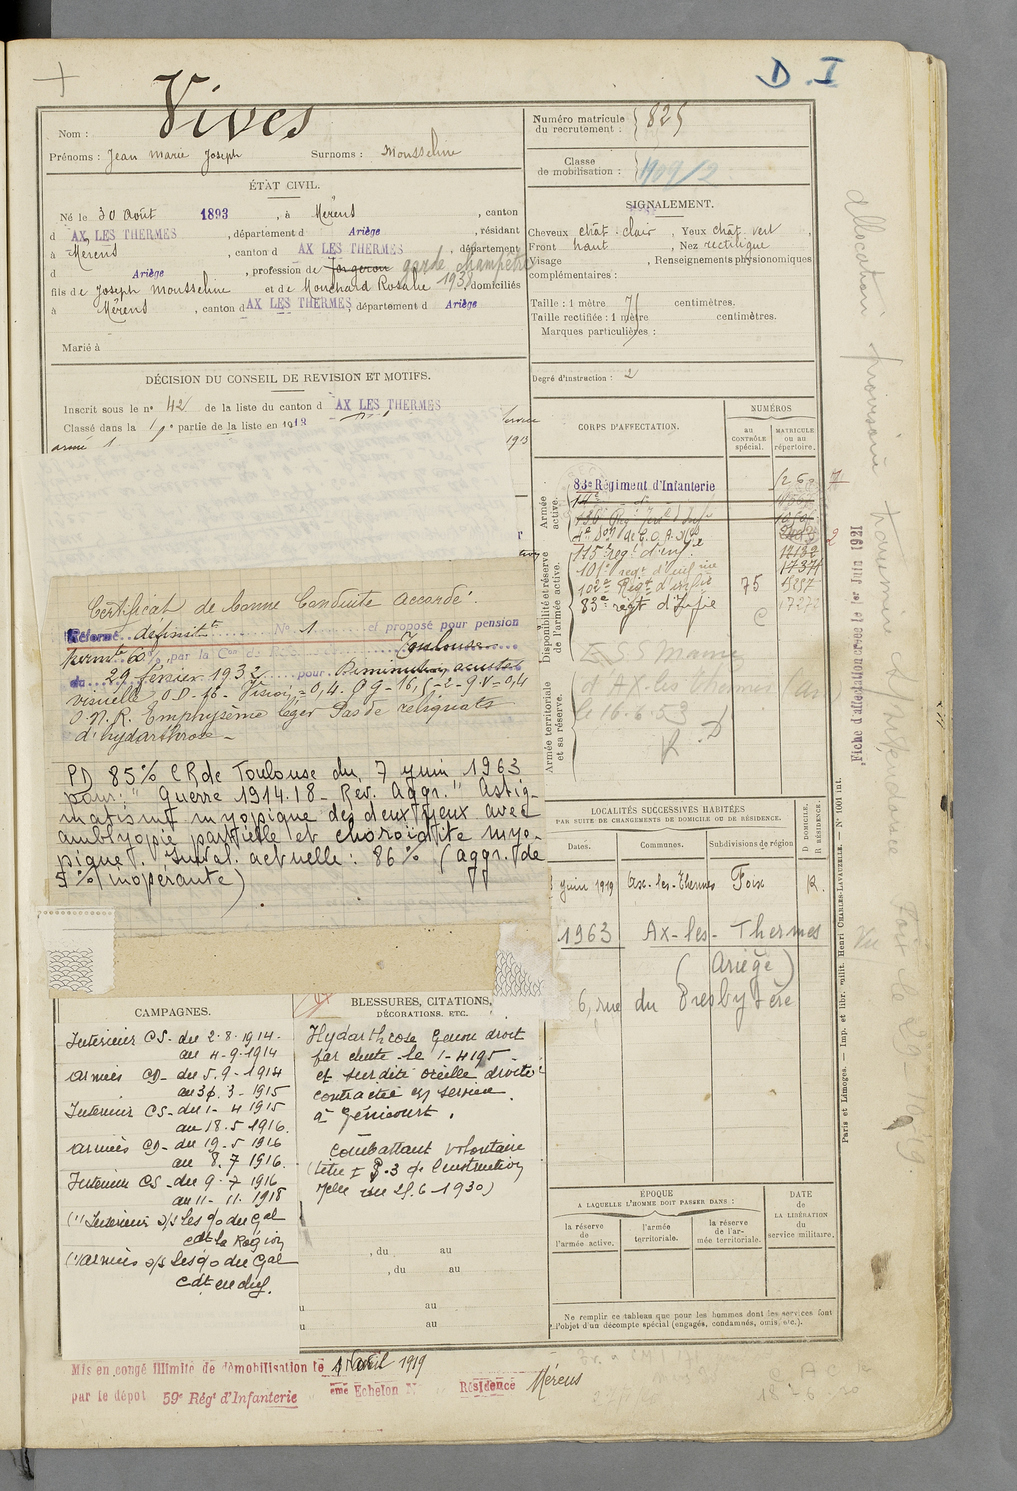 D. I
Vives
Nom :
Prénoms : Jean Marie Joseph Surnoms : Mousseline
Numéro matricule du recrutement : 825
Classe de mobilisation : 1909/2
ÉTAT CIVIL.
Né le 30 Août 1893, à Mérens, canton
d AX LES THERMES, département d Ariège, résidant
à Mérens, canton d AX LES THERMES, département
d Ariège, profession de forgeron garde champêtre 1938
fils de Joseph Mousseline et de Mouchard Rosalie domiciliés
à Mérens, canton d AX LES THERMES, département d Ariège
Marié à
SIGNALEMENT.
Cheveux chât : clair, Yeux chât. vert,
Front haut, Nez rectiligne
Visage, Renseignements physionomiques
complémentaires :
Taille : 1 mètre 71 centimètres.
Taille rectifiée : 1 mètre centimètres.
Marques particulières :
Degré d'instruction : 2
DÉCISION DU CONSEIL DE REVISION ET MOTIFS.
Inscrit sous le n° 42 de la liste du canton d AX LES THERMES
Classé dans la 1e partie de la liste en 1913
service
armé
1913
CORPS D'AFFECTATION.
NUMÉROS
au CONTRÔLE spécial.
MATRICULE ou au répertoire.
Armée active.
83e Régiment d'Infanterie
Disponibilité et réserve de l'armée active.
115e rég. d'inf.ie 17132
101e rég. d'infie 17374
102e Régt d'infie 75
83e régt d'Infie
Armée territoriale et sa réserve.
d'AX-les-Thermes (Ar)
le 16.6.53
Certificat de bonne Conduite accordé.
Réformé définitt N° 1 et proposé pour pension
permte 60%, par la Con de Toulouse
du 29 février 1932 pour Diminution acuité
visuelle O.D. Vision = 0,4. V = 0,4
O.N.R. Emphysème léger Pas de reliquats
d'hydarthrose -
PD 85% CR de Toulouse du 7 juin 1963
pour : " Guerre 1914.18 - Rev. Aggr. " Astig-
matisme myopique des deux yeux avec
amblyopie partielle et choroïdite myo-
pique. Inval. actuelle : 86% (aggr. de
5% inopérante).
LOCALITÉS SUCCESSIVES HABITÉES
PAR SUITE DE CHANGEMENTS DE DOMICILE OU DE RÉSIDENCE.
Dates. Communes. Subdivisions de région
D DOMICILE, R RÉSIDENCE.
juin 1919 Ax-les-Thermes Foix R.
1963 Ax-les-Thermes
(Ariège)
6, rue du Presbytère
CAMPAGNES.
Intérieur CS- du 2.8.1914.
au 4-9-1914
Armées CD- du 5.9-1914
au 31.3-1915
Intérieur CS- du 1- 4 1915
au 18.5 1916.
Armées CD- du 19-5 1916
au 8.7 1916.
Intérieur CS- du 9-7 1916
au 11-11-1918
(1) Intérieur s/s les qo du Gal
cdt la Région
(1) Armées s/s les qo du Gal
Cdt en chef.
BLESSURES, CITATIONS,
DÉCORATIONS, ETC.
Hydarthrose Genou droit
par chute le 1-4 195
et surdité oreille droite
contractée en service
à Génicourt.
Combattant Volontaire
(titre I §.3 de l'instruction
du 25.6-1930)
, du au
, du au
au
au
ÉPOQUE
A LAQUELLE L'HOMME DOIT PASSER DANS :
la réserve de l'armée active.
l'armée territoriale.
la réserve de l'armée territoriale.
DATE de LA LIBÉRATION du service militaire.
Ne remplir ce tableau que pour les hommes dont les services font
l'objet d'un décompte spécial (engagés, condamnés, omis, etc.).
Mis en congé illimité de démobilisation le 1 Avril 1919
par le dépôt 59e Régt d'Infanterie ème Echelon N Résidence Mérens
Fiche d'affectation créée le 1er Juin 1921
Paris et Limoges. — Imp. et libr. milit. Henri CHARLES-LAVAUZELLE. — N° 1001 int.
allocation provisoire